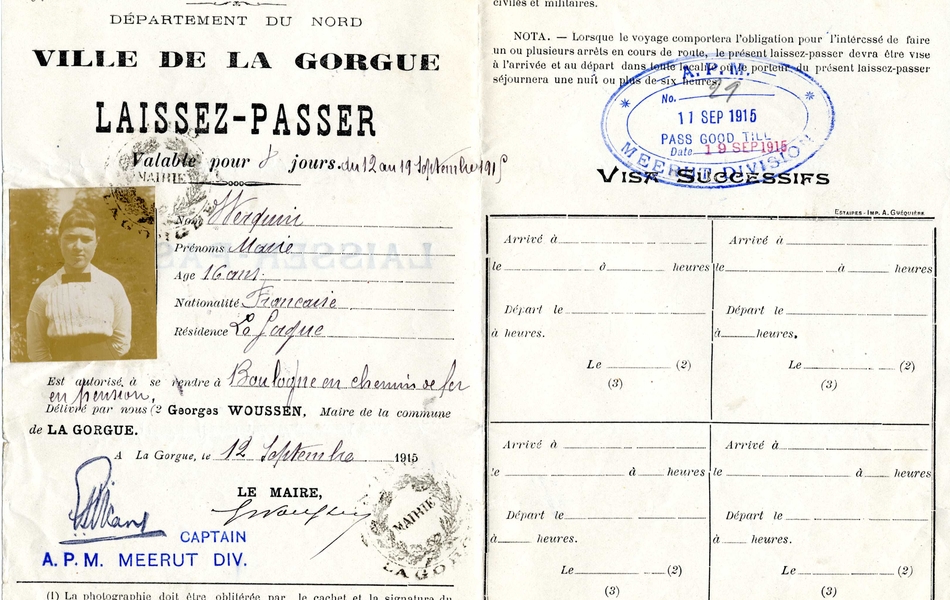 DÉPARTEMENT DU NORD
VILLE DE LA GORGUE
LAISSEZ-PASSER
Valable pour 8 jours. du 12 au 19 Septembre 1915
MAIRIE
LA GORGUE
Nom Werquin
Prénoms Marie
Age 16 ans
Nationalité Francaise
Résidence La Gorgue
Est autorisé, à se rendre à Boulogne en chemin de fer
en pension,
Délivré par nous (2 Georges WOUSSEN, Maire de la commune
de LA GORGUE.
A La Gorgue, le 12 Septembre 1915
LE MAIRE,
GWoussen
MAIRIE
LA GORGUE
CAPTAIN
A. P. M. MEERUT DIV.
(1) La photographie doit être oblitérée par le cachet et la signature du
civiles et militaires.
NOTA. — Lorsque le voyage comportera l'obligation pour l'intéressé de faire
un ou plusieurs arrêts en cours de route, le présent laissez-passer devra être vise
à l'arrivée et au départ dans toute localité ou le porteur du présent laissez-passer
séjournera une nuit ou plus de six heures.
A. P. M.
No. 29
11 SEP 1915
PASS GOOD TILL
Date 19 SEP 1915
MEERUT DIVISION
VISA SUCCESSIFS
ESTAIRES - IMP. A. GUÉQUIÈRE
Arrivé à
le à heures
Départ le
à heures.
Le (2)
(3)
Arrivé à
le à heures
Départ le
à heures.
Le (2)
(3)
Arrivé à
le à heures
Départ le
à heures.
Le (2)
(3)
Arrivé à
le à heures
Départ le
à heures.
Le (2)
(3)